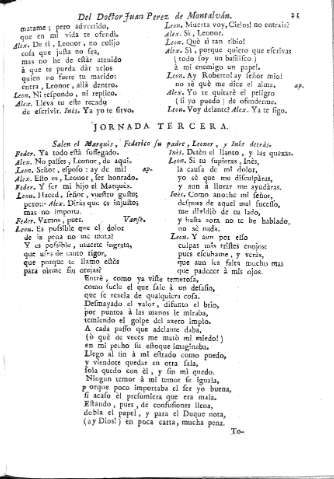 Del Doctor Juan Perez de Montalván. 25
matame; pero advertido,
que en mi vida te ofendi.
Alex. De ti, Leonor, no colijo
cosa que justa no sea,
mas no he de estár atenido
à que te pueda dár zelos
quien no fuere tu marido:
entra, Leonor, allá dentro.
Leon. Ni respondo, ni replico.
Alex. Lleva tu este recado
de escrivir. Inès. Ya yo te sirvo.
Leon. Muerta voy, Cielos! no entrais?
Alex. Si, Leonor.
Leon. Què si tan tibio!
Alex. Si, porque quiero que escrivas
(todo soy un basilisco)
à mi enemigo un papel.
Leon. Ay Roberto! ay señor mio!
no sè què me dice el alma. ap.
Alex. Yo te quitarè el peligro
(si yo puedo) de ofenderme.
Leon. Voy delante? Alex. Ya te sigo.
JORNADA TERCERA.
Salen el Marquès, Federico su padre, Leonor, y Inès detràs.
Feder. Ya todo està sossegado.
Alex. No passes, Leonor, de aqui.
Leon. Señor, esposo: ay de mi! ap.
Alex. Esto es, Leonor, ser honrado.
Feder. Y ser mi hijo el Marquès.
Leon. Haced, señor, vuestro gusto;
pero- Alex. Diràs que es injusto;
mas no importa.
Feder. Vamos, pues. Vanse.
Leon. Es possible que el dolor
de la pena no me mata?
Y es possible, muerte ingrata,
que usas de tanto rigor,
que porque te llamo estès
para oirme sin orejas?
Inès. Detèn el llanto, y las quexas.
Leon. Si tu supieras, Inès,
la causa de mi dolor,
yo sè que me disculpàras,
y aun à llorar me ayudàras.
Inès. Como anoche mi señor,
despues de aquel mal sucesso,
me desviò de tu lado,
y hasta aora no te he hablado,
no sè nada.
Leon. Y aun por esso
culpas mis tristes enojos:
pues escuchame, y veràs,
que aun les falta mucho mas
que padecer à mis ojos.
Entrè, como ya viste temerosa,
como suele el que sale à un desafio,
que se rezela de qualquiera cosa.
Desmayado el valor, difunto el brio,
por puntos à las manos le miraba,
temiendo el golpe del azero impio.
A cada passo que adelante daba,
(ò què de veces me matò mi miedo!)
en mi pecho su estoque imaginaba.
Llego al fin à mi estrado como puedo,
y viendote quedar en otra sala,
sola quedo con èl, y sin mi quedo.
Ningun temor à mi temor se iguala,
porque poco importaba el ser yo buena,
si acaso èl presumiera que era mala.
Estando, pues, de confusiones llena,
dobla el papel, y para el Duque nota,
(ay Dios!) en poca carta, mucha pena.
To-